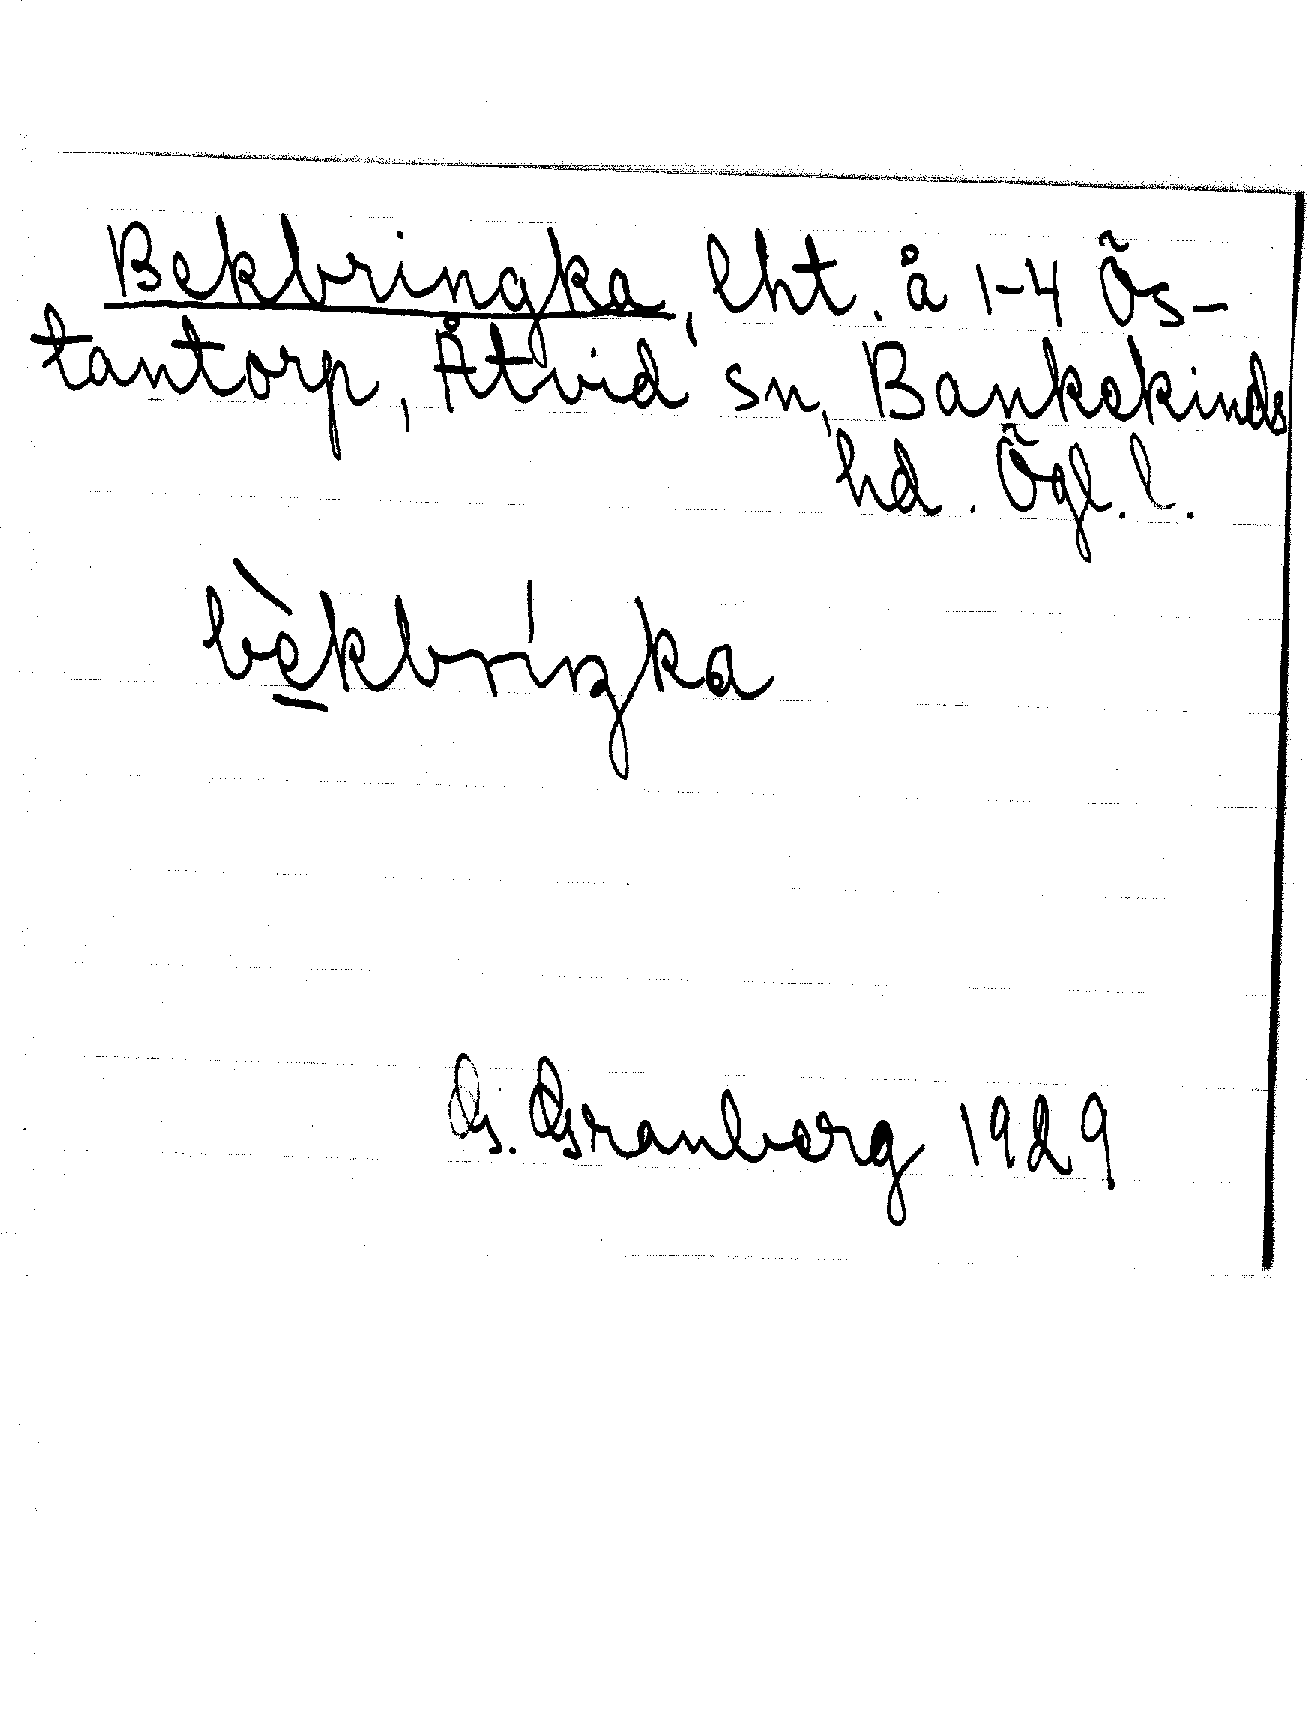 Bekbringka, lht. å 1-4 Ös-
tantorp, Åtvid sn, Bankekinds
hd. Ögl. l.
bèkbrıŋka
G. Granberg 1929